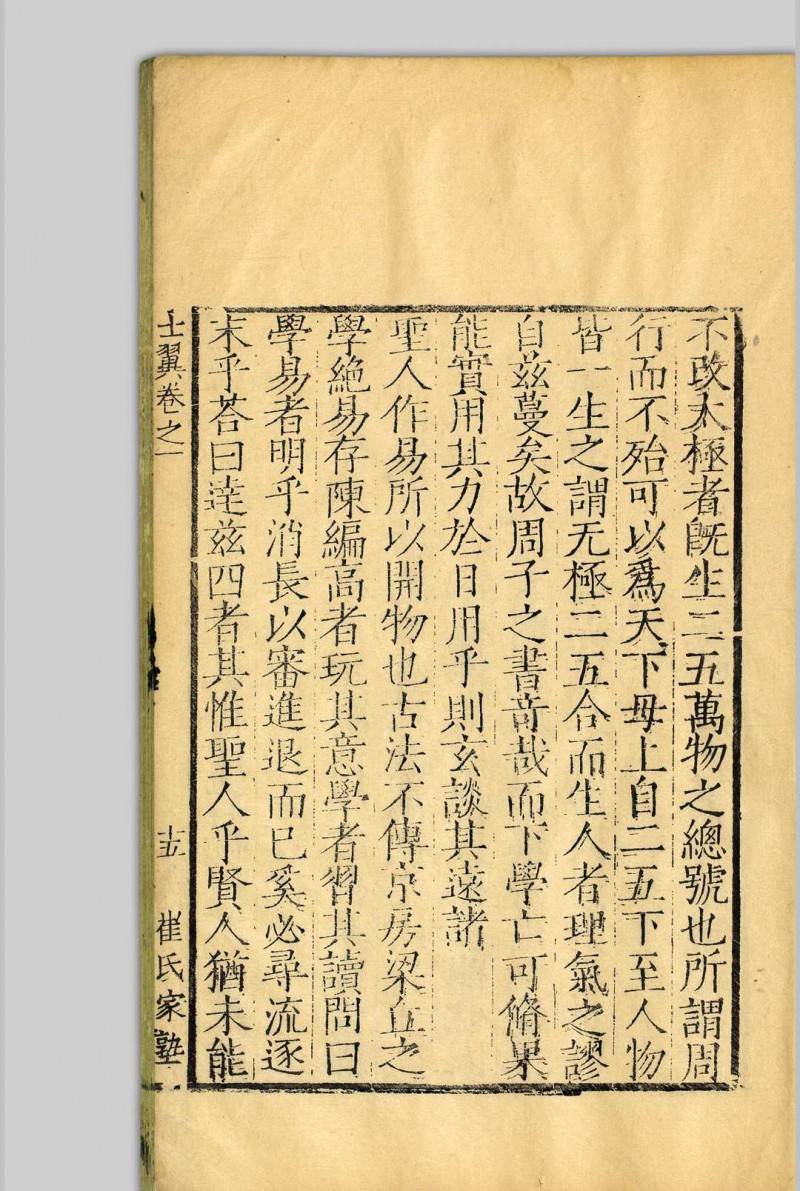 不改太極者旣生二五萬物之總號也所謂周
行而不殆可以爲天下母上自二五下至人物
皆一生之謂无極二五合而生人者理氣之謬
自茲蔓矣故周子之書竒哉而下學亡可脩果
能實用其力於日用乎則玄談其遠諸
聖人作易所以開物也古法不傳京房梁丘之
學絶易存陳編高者玩其意學者習其讀問曰
學易者明乎消長以審進退而已奚必尋流逐
末乎荅曰達茲四者其惟聖人乎賢人猶未能
士翼卷之一
十五
崔氏家塾